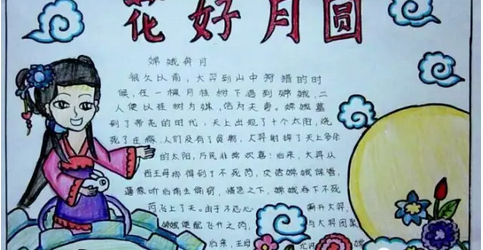 花好月圆
嫦娥奔月
很久以前，大羿到山中狩猎的时
候，在一棵月桂树下遇到嫦娥，二
人便以桂树为媒，结为夫妻。嫦娥
到了帝尧的时代，天上出现了十个太阳，烧
死了庄稼，人们没有了食物，大羿射掉了天上多余
的太阳，万民非常欢喜，后来，大羿从
西王母那得到了不死药，交给嫦娥保管，
逢蒙听后前去偷窃，偷窃之下，嫦娥吞下不死
药飞上了天。由于不忍心 离开大羿，
嫦娥 药，与大羿团聚
后来，